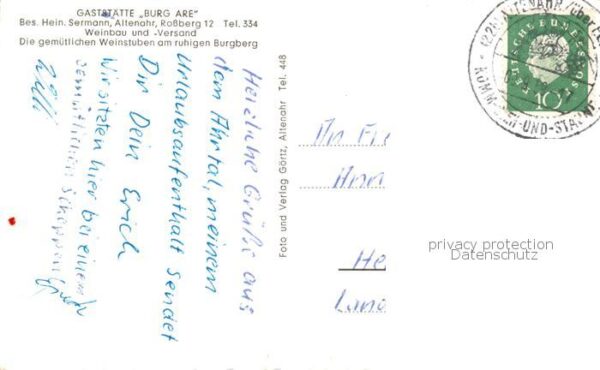 GASTSTÄTTE „BURG ARE"
Bes. Hein. Sermann, Altenahr, Roßberg 12 Tel. 334
Weinbau und -Versand
Die gemütlichen Weinstuben am ruhigen Burgberg
Herzliche Grüße aus
dem Ahrtal, meinem
Urlaubsaufenthalt sendet
Dir Dein Erich
Wir sitzen hier bei einem
gemütlichen Schoppen
Willi
Foto und Verlag Görtz, Altenahr Tel. 448
DEUTSCHE BUNDESPOST
10
ALTENAHR
An
He
Land
privacy protection
Datenschutz